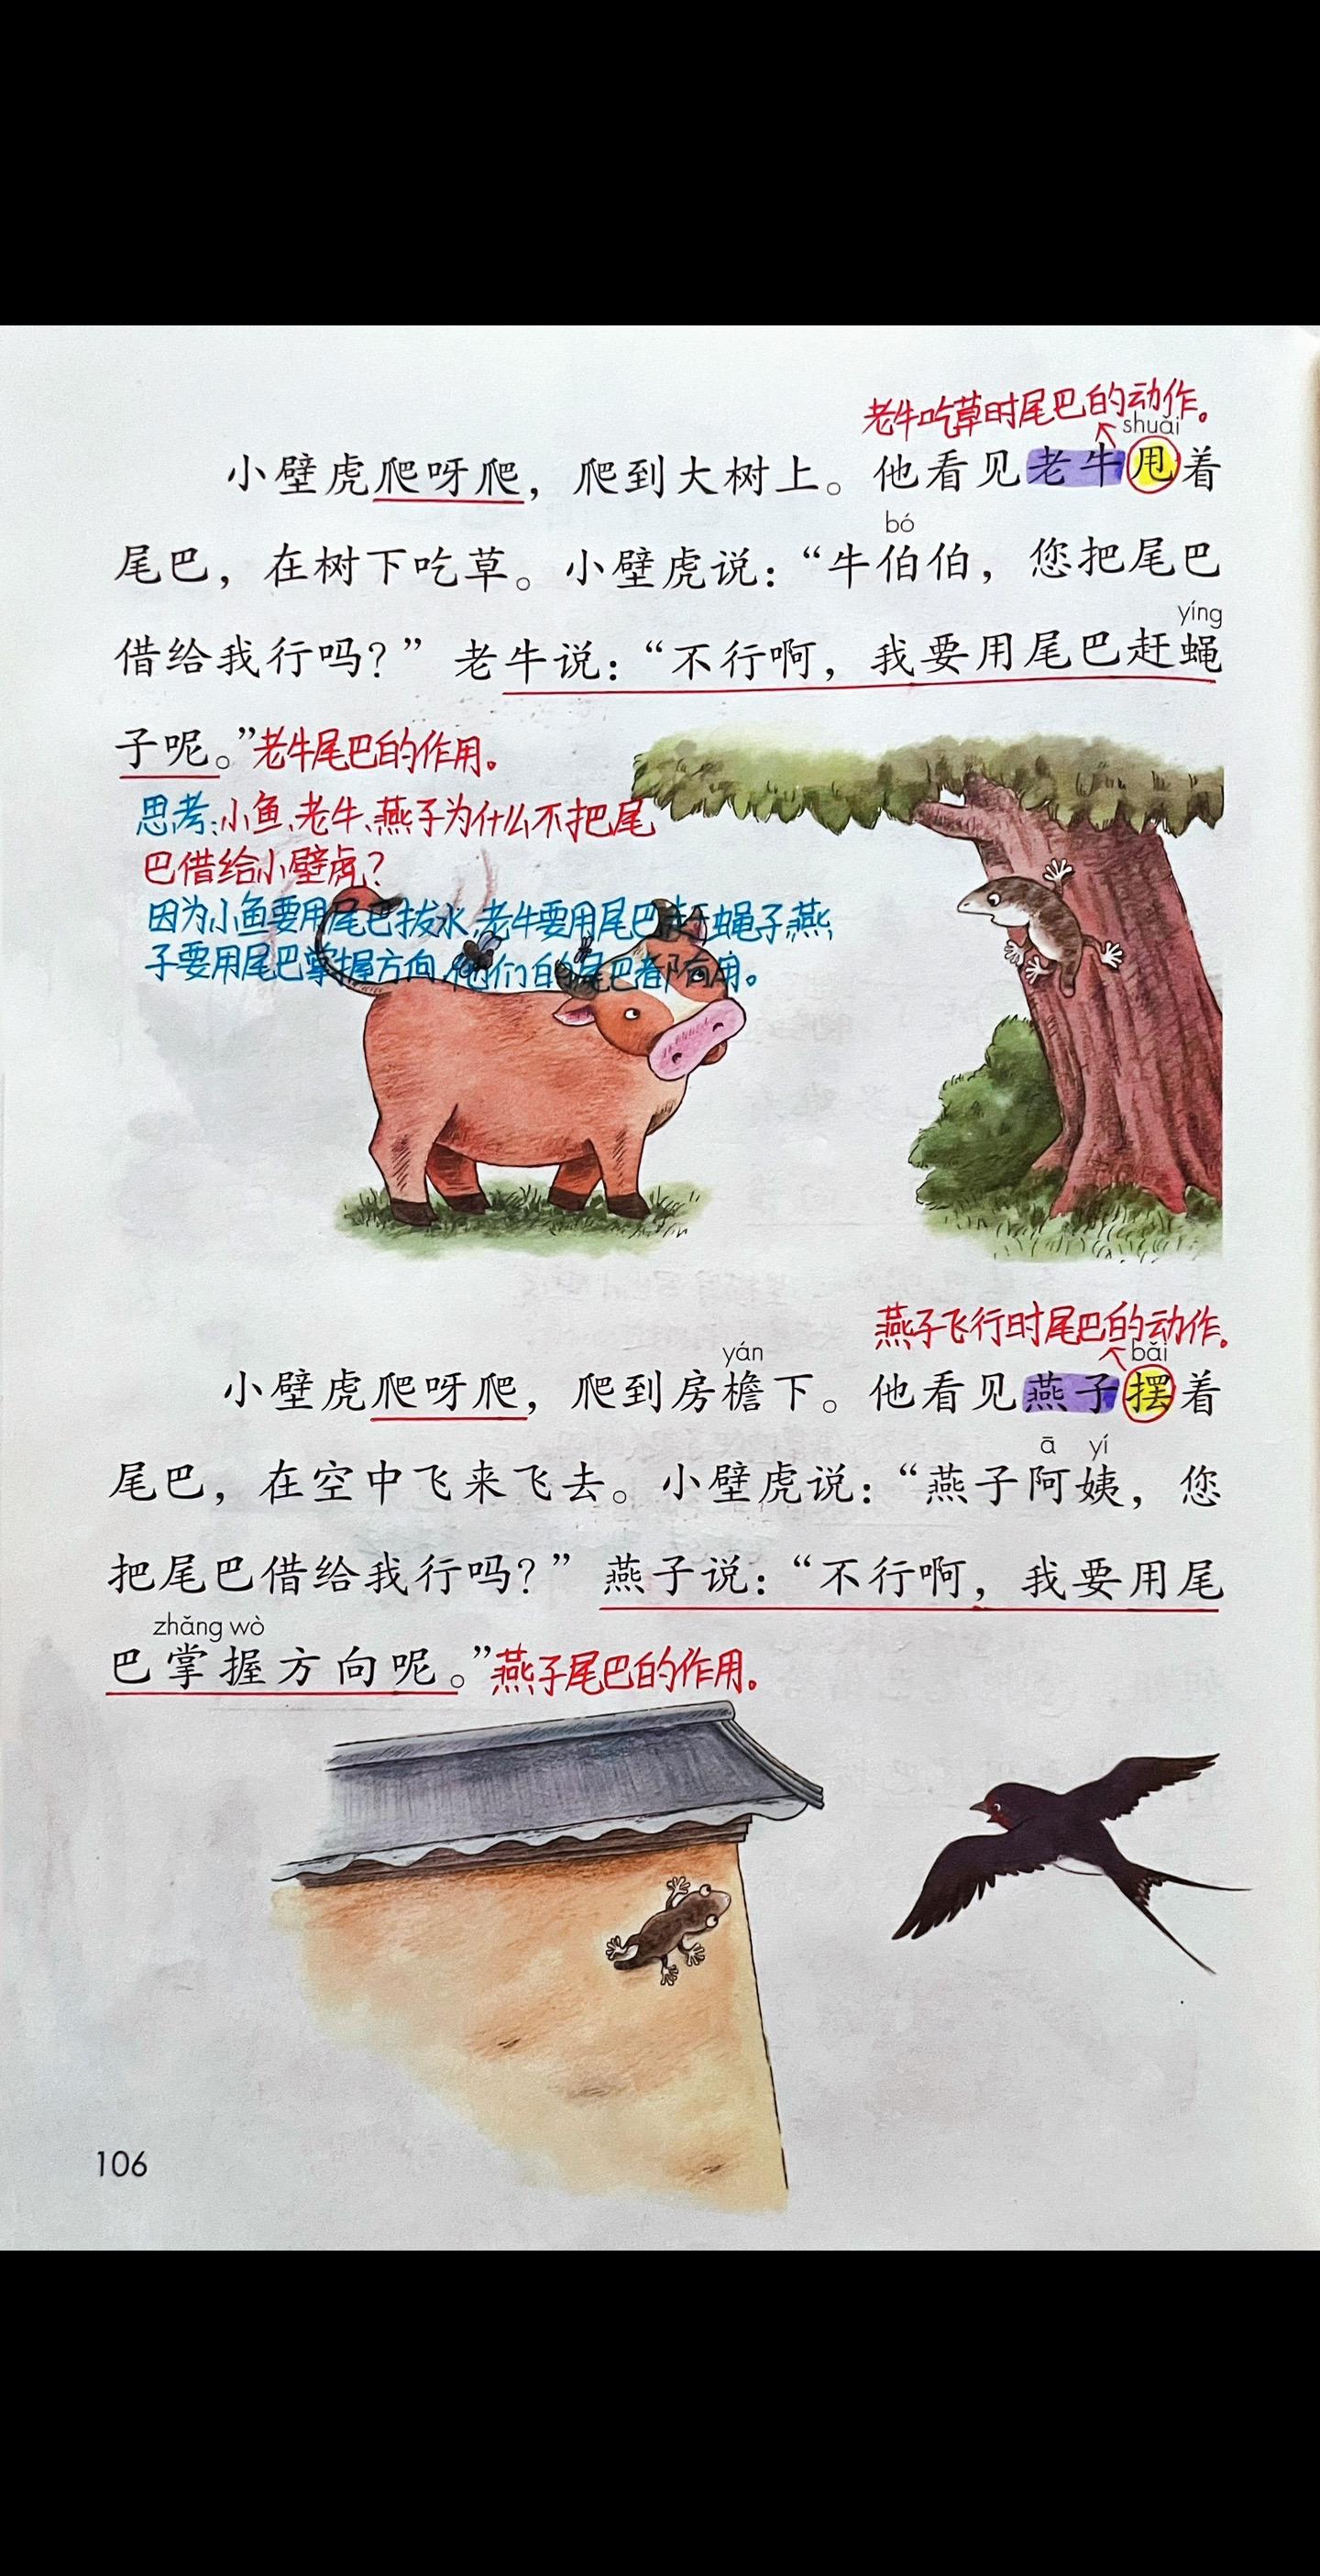 老牛吃草时尾巴的动作。
shuǎi
小壁虎爬呀爬，爬到大树上。他看见老牛甩着
bó
尾巴，在树下吃草。小壁虎说：“牛伯伯，您把尾巴
yíng
借给我行吗？”老牛说：“不行啊，我要用尾巴赶蝇
子呢。”老牛尾巴的作用。
思考:小鱼、老牛、燕子为什么不把尾
巴借给小壁虎？
因为小鱼要用尾巴拨水,老牛要用尾巴赶蝇子,燕
子要用尾巴掌握方向,他们的尾巴都有用。
燕子飞行时尾巴的动作。
yán bǎi
小壁虎爬呀爬，爬到房檐下。他看见燕子摆着
ā yí
尾巴，在空中飞来飞去。小壁虎说：“燕子阿姨，您
把尾巴借给我行吗？”燕子说：“不行啊，我要用尾
zhǎng wò
巴掌握方向呢。”燕子尾巴的作用。
106